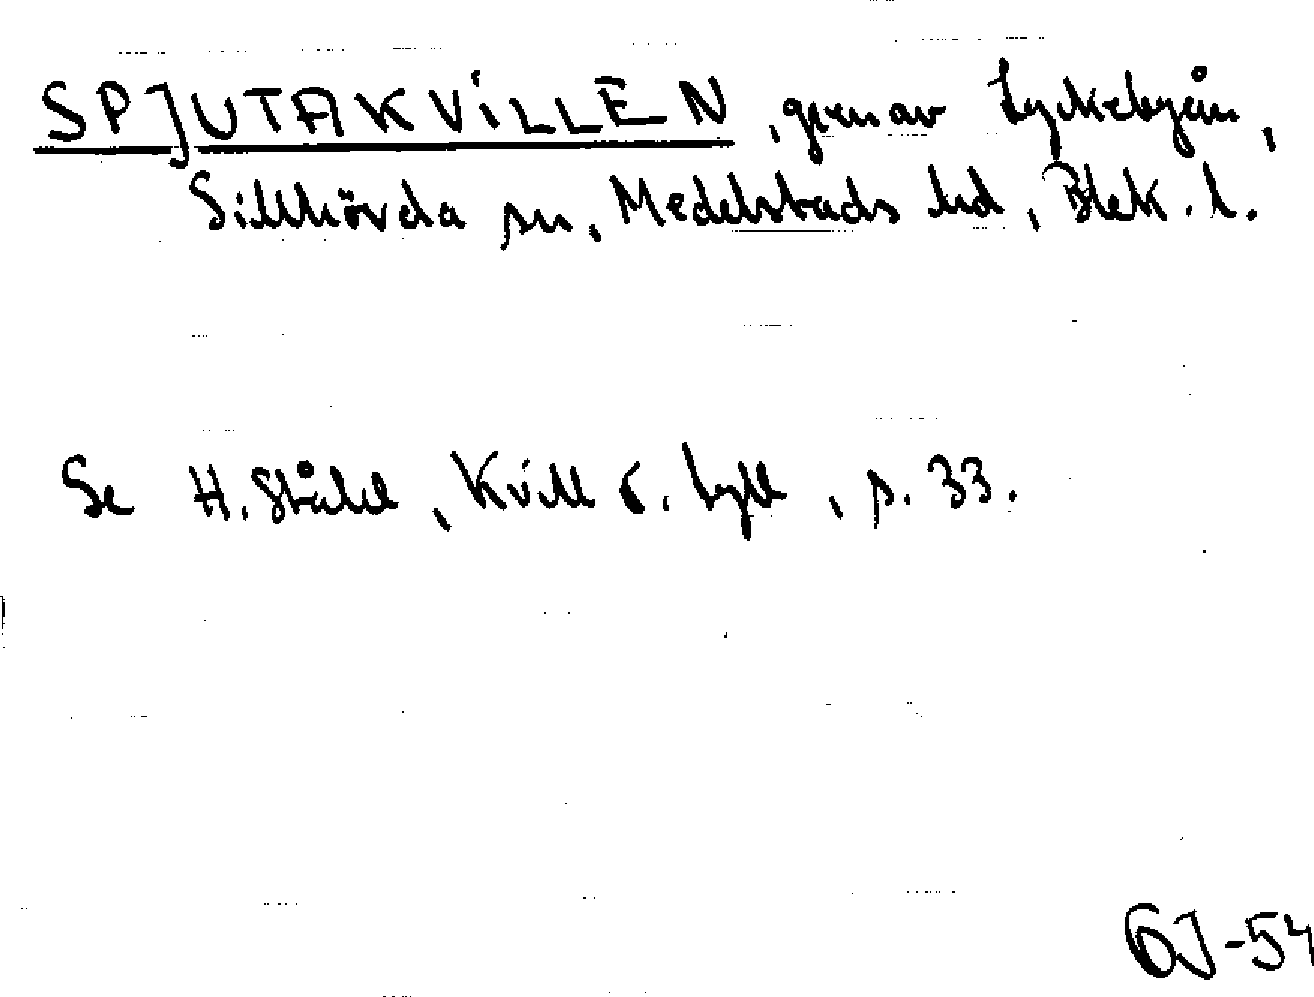 SPJUTAKVILLEN, gren av Lyckebyån,
Sillhövda sn, Medelstads hd, Blek. l.
Se H. Ståhl, Kvill o. tyll, s. 33.
GJ-54